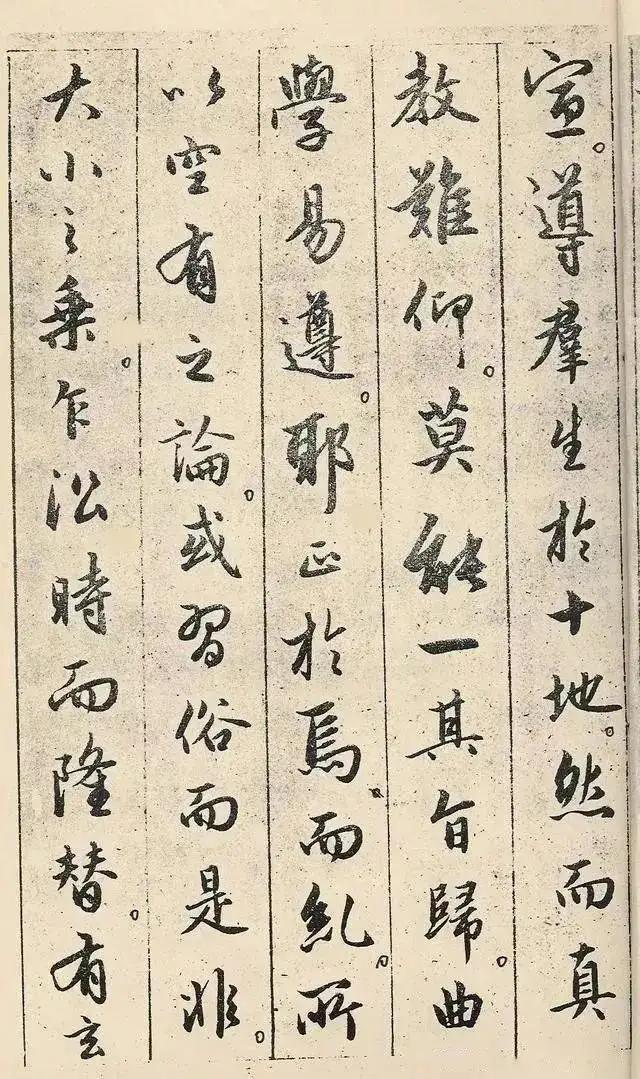 宣。導羣生於十地。然而真
教難仰。莫能一其旨歸。曲
學易遵。耶正於焉。而紇。所
以空有之論。或習俗而是非。
大小之乗。乍㳂時而隆替。有玄